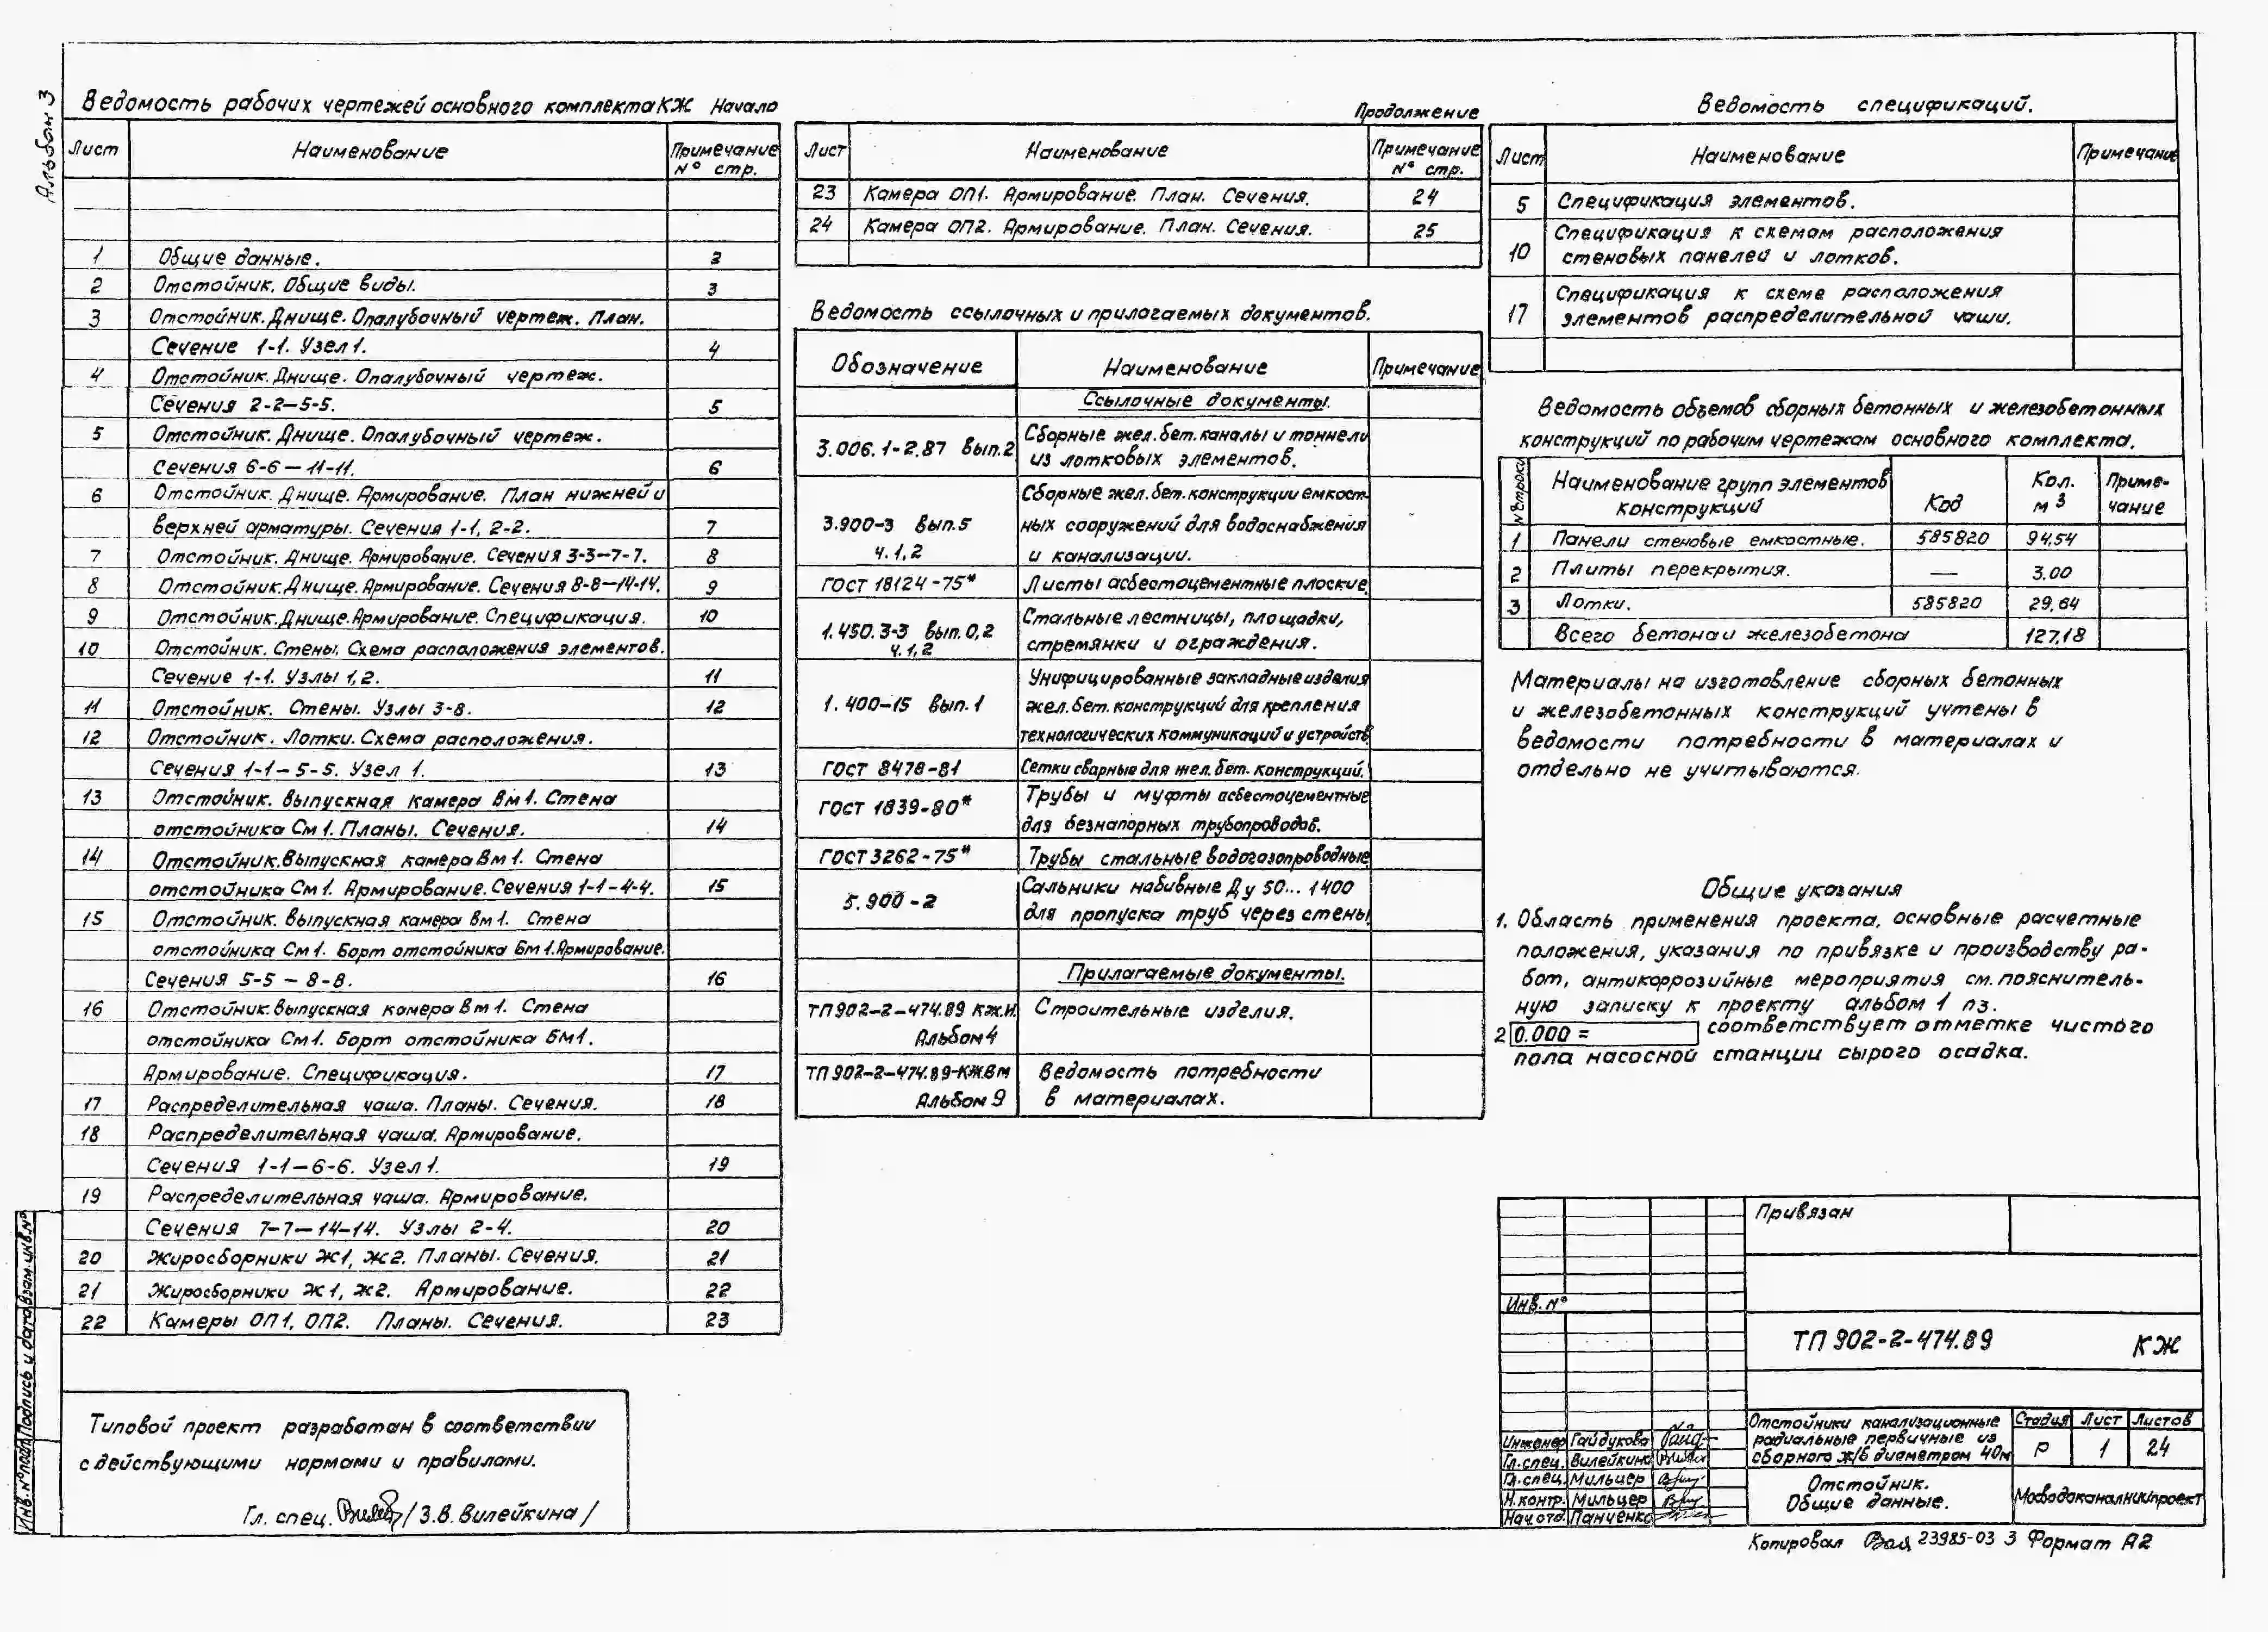 Альбом 3
Ведомость рабочих чертежей основного комплекта КЖ Начало
Лист Наименование Примечание № стр.
1 Общие данные. 2
2 Отстойник. Общие виды. 3
3 Отстойник. Днище. Опалубочный чертеж. План.
Сечение 1-1. Узел 1. 4
4 Отстойник. Днище. Опалубочный чертеж.
Сечения 2-2—5-5. 5
5 Отстойник. Днище. Опалубочный чертеж.
Сечения 6-6 — 11-11. 6
6 Отстойник. Днище. Армирование. План нижней и
верхней арматуры. Сечения 1-1, 2-2. 7
7 Отстойник. Днище. Армирование. Сечения 3-3—7-7. 8
8 Отстойник. Днище. Армирование. Сечения 8-8—14-14. 9
9 Отстойник. Днище. Армирование. Спецификация. 10
10 Отстойник. Стены. Схема расположения элементов.
Сечение 1-1. Узлы 1,2. 11
11 Отстойник. Стены. Узлы 3-8. 12
12 Отстойник. Лотки. Схема расположения.
Сечения 1-1 – 5-5. Узел 1. 13
13 Отстойник. Выпускная камера Вм1. Стена
отстойника См1. Планы. Сечения. 14
14 Отстойник. Выпускная камера Вм1. Стена
отстойника См1. Армирование. Сечения 1-1 – 4-4. 15
15 Отстойник. Выпускная камера Вм1. Стена
отстойника См1. Борт отстойника Бм1. Армирование.
Сечения 5-5 – 8-8. 16
16 Отстойник. Выпускная камера Вм1. Стена
отстойника См1. Борт отстойника Бм1.
Армирование. Спецификация. 17
17 Распределительная чаша. Планы. Сечения. 18
18 Распределительная чаша. Армирование.
Сечения 1-1—6-6. Узел 1. 19
19 Распределительная чаша. Армирование.
Сечения 7-7—14-14. Узлы 2-4. 20
20 Жиросборники Ж1, Ж2. Планы. Сечения. 21
21 Жиросборники Ж1, Ж2. Армирование. 22
22 Камеры ОП1, ОП2. Планы. Сечения. 23
Типовой проект разработан в соответствии
с действующими нормами и правилами.
Гл. спец. / З.В. Вилейкина /
Инв. № подл. Подпись и дата Взам. инв. №
Продолжение
Лист Наименование Примечание № стр.
23 Камера ОП1. Армирование. План. Сечения. 24
24 Камера ОП2. Армирование. План. Сечения. 25
Ведомость ссылочных и прилагаемых документов.
Обозначение Наименование Примечание
Ссылочные документы.
3.006.1-2.87 Вып.2 Сборные жел.бет. каналы и тоннели
из лотковых элементов.
Сборные жел.бет. конструкции емкост-
3.900-3 Вып.5 ных сооружений для водоснабжения
ч.1,2 и канализации.
ГОСТ 18124-75* Листы асбестоцементные плоские.
1.450.3-3 Вып.0,2 Стальные лестницы, площадки,
ч.1,2 стремянки и ограждения.
Унифицированные закладные изделия
1.400-15 Вып.1 жел.бет. конструкций для крепления
технологических коммуникаций и устройств
ГОСТ 8478-81 Сетки сварные для жел.бет. конструкций.
ГОСТ 1839-80* Трубы и муфты асбестоцементные
для безнапорных трубопроводов.
ГОСТ 3262-75* Трубы стальные водогазопроводные
5.900-2 Сальники набивные Ду 50...1400
для пропуска труб через стены
Прилагаемые документы.
ТП 902-2-474.89 КЖ.И Строительные изделия.
Альбом 4
ТП 902-2-474.89-КЖ.Вм Ведомость потребности
Альбом 9 в материалах.
Ведомость спецификаций.
Лист Наименование Примечание
5 Спецификация элементов.
10 Спецификация к схемам расположения
стеновых панелей и лотков.
17 Спецификация к схеме расположения
элементов распределительной чаши.
Ведомость объемов сборных бетонных и железобетонных
конструкций по рабочим чертежам основного комплекта.
№ строки Наименование групп элементов конструкций Код Кол. м3 Приме-чание
1 Панели стеновые емкостные. 585820 94,54
2 Плиты перекрытия. — 3.00
3 Лотки. 585820 29,64
Всего бетона и железобетона 127,18
Материалы на изготовление сборных бетонных
и железобетонных конструкций учтены в
ведомости потребности в материалах и
отдельно не учитываются.
Общие указания
1. Область применения проекта, основные расчетные
положения, указания по привязке и производству ра-
бот, антикоррозийные мероприятия см. пояснитель-
ную записку к проекту альбом 1 пз.
2 0.000 = соответствует отметке чистого
пола насосной станции сырого осадка.
Привязан
Инв. №
ТП 902-2-474.89 КЖ
Инженер Гайдукова
Гл. спец. Вилейкина
Гл. спец. Мильцер
Н. контр. Мильцер
Нач. отд. Панченко
Отстойники канализационные
радиальные первичные из
сборного ж/б диаметром 40м
Стадия Лист Листов
Р 1 24
Отстойник.
Общие данные.
Мосводоканалниипроект
Копировал 23985-03 3 Формат А2